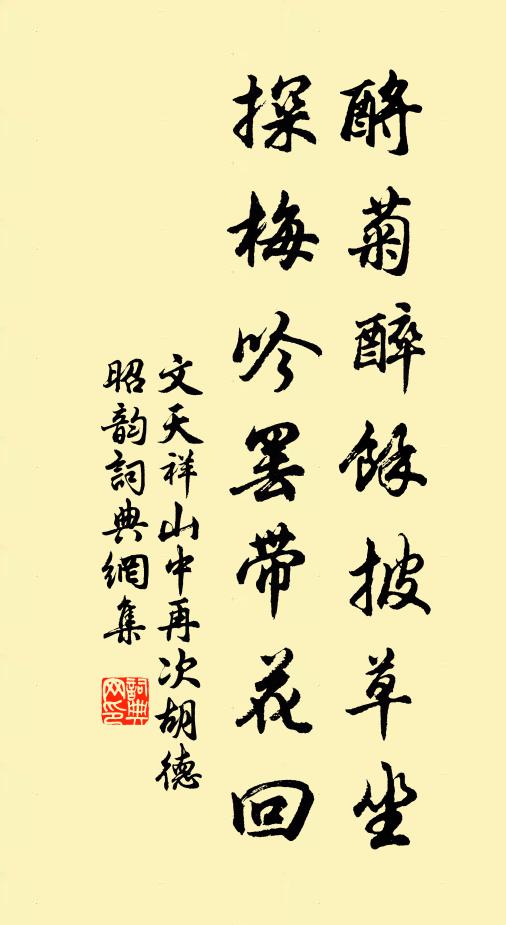 酹菊醉餘披草坐
探梅吟罢帶花回
文天祥山中再次胡德
昭韵詞典網集
詞典
网印